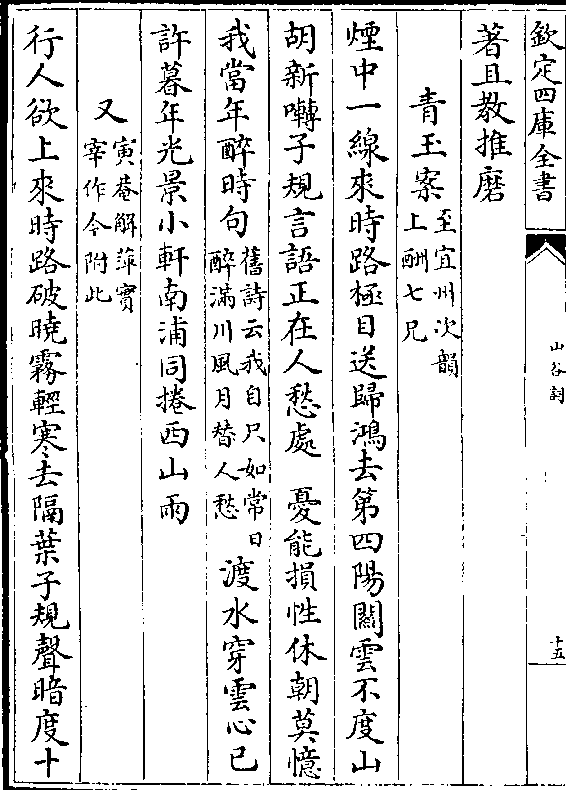 欽定四庫全書
山谷詞
十五
著且教推磨
青玉案
至宜州次韻
上酬七兄
煙中一線來時路極目送歸鴻去第四陽關雲不度山
胡新囀子規言語正在人愁處 憂能損性休朝莫憶
我當年醉時句
舊詩云我自只如常日
醉滿川風月替人愁
渡水穿雲心已
許暮年光景小軒南浦同捲西山雨
又
寅菴解萍實
宰作今附此
行人欲上來時路破曉霧輕寒去隔葉子規聲暗度十